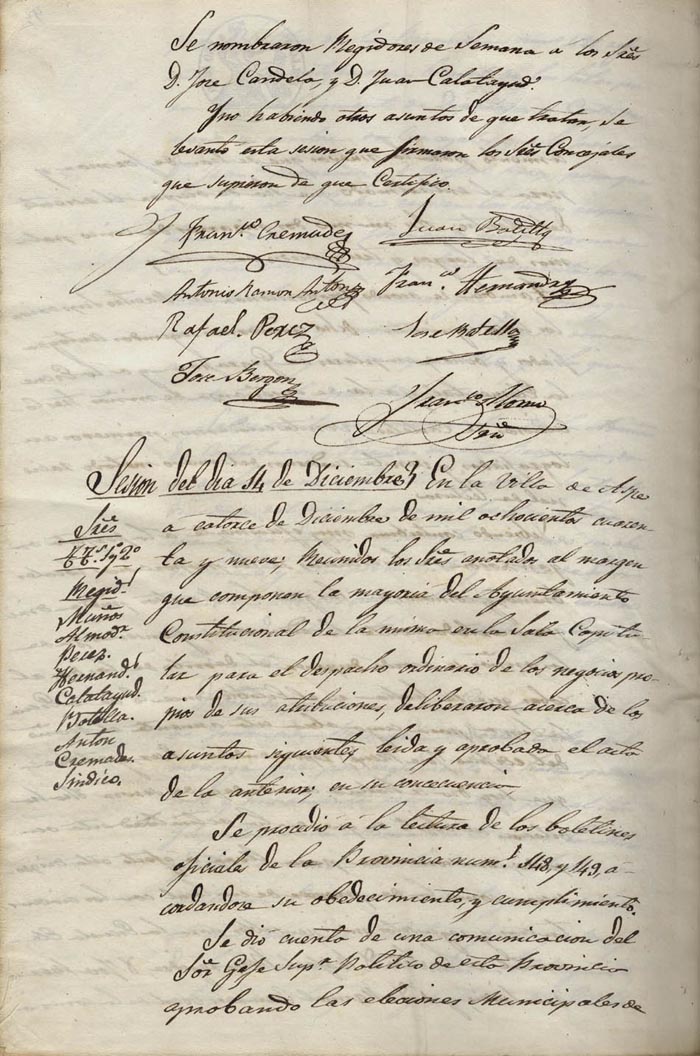 Se nombraron Regidores de Semana á los Sres
D. Jose Candela, y D. Juan Calatayud.
Y no habiendo otros asuntos de que tratar, se
levanto esta sesion que firmaron los Sres Concejales
que supieron de que Certifico.
Franco Cremades
Juan Botella
Antonio Ramon Antón
Franco Hernandez
Rafael Perez
Jose Botella
Jose Bergon
Franco
Srio
Sesion del dia 14 de Diciembre} En la Villa de Aspe
a catorce de Diciembre de mil ochocientos cuaren-
ta y nueve; Reunidos los Sres anotados al margen
que componen la mayoria del Ayuntamiento
Constitucional de la misma en la Sala Capitu-
lar para el despacho ordinario de los negocios pro-
pios de sus atribuciones, deliberaron acerca de los
asuntos siguientes, leida y aprobada el acta
de la anterior; en su concecuencia,
Sres
TTes 1º y 2º
Regid.
Muños
Almodr
Perez
Hernand.
Calatayud.
Botella.
Anton
Cremades
Sindico.
Se procedió á la lectura de los boletines
oficiales de la Provincia nums 148, y 149, a-
cordandose su obedecimiento, y cumplimiento.
Se dió cuenta de una comunicacion del
Sor Gefe Supr Politico de esta Provincia
aprobando las elecciones Municipales de